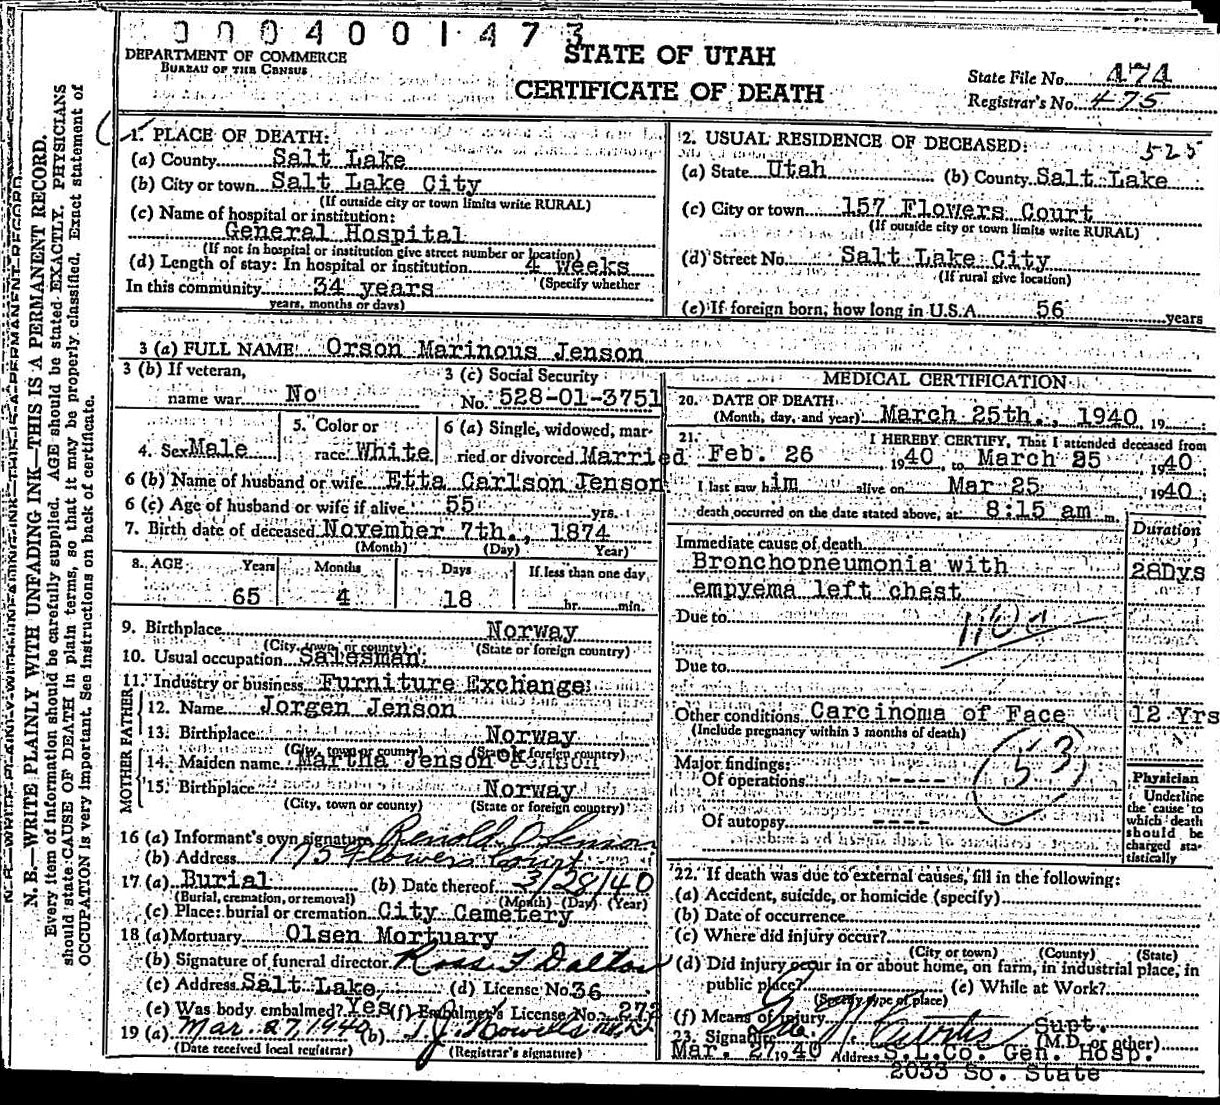 0004001473
DEPARTMENT OF COMMERCE
BUREAU OF THE CENSUS
STATE OF UTAH
CERTIFICATE OF DEATH
State File No. 474
Registrar's No. 475
N. B.—WRITE PLAINLY WITH UNFADING INK—THIS IS A PERMANENT RECORD.
Every item of information should be carefully supplied. AGE should be stated EXACTLY. PHYSICIANS
should state CAUSE OF DEATH in plain terms, so that it may be properly classified. Exact statement of
OCCUPATION is very important. See instructions on back of certificate.
1. PLACE OF DEATH:
(a) County Salt Lake
(b) City or town Salt Lake City
(If outside city or town limits write RURAL)
(c) Name of hospital or institution:
General Hospital
(If not in hospital or institution give street number or location)
(d) Length of stay: In hospital or institution 4 weeks
(Specify whether
In this community 34 years
years, months or days)
2. USUAL RESIDENCE OF DECEASED:
525
(a) State Utah (b) County Salt Lake
(c) City or town 157 Flowers Court
(If outside city or town limits write RURAL)
(d) Street No. Salt Lake City
(If rural give location)
(e) If foreign born, how long in U.S.A. 56 years
3 (a) FULL NAME Orson Marinous Jenson
3 (b) If veteran,
name war No
3 (c) Social Security
No. 528-01-3751
4. Sex Male
5. Color or
race White
6 (a) Single, widowed, mar-
ried or divorced Married
6 (b) Name of husband or wife Etta Carlson Jenson
6 (c) Age of husband or wife if alive 55 yrs.
7. Birth date of deceased November 7th., 1874
(Month) (Day) Year)
8. AGE Years Months Days If less than one day
65 4 18 hr. min.
9. Birthplace Norway
(City, town, or county) (State or foreign country)
10. Usual occupation Salesman
11. Industry or business Furniture Exchange
FATHER
12. Name Jorgen Jenson
13. Birthplace Norway
(City, town or county) (State or foreign country)
MOTHER
14. Maiden name Martha Jenson ok
15. Birthplace Norway
(City, town or county) (State or foreign country)
16 (a) Informant's own signature Renold O Jenson
(b) Address 175 Flowers Court
17 (a) Burial (b) Date thereof 3/28/40
(Burial, cremation, or removal) (Month) (Day) (Year)
(c) Place: burial or cremation City Cemetery
18 (a) Mortuary Olsen Mortuary
(b) Signature of funeral director Ross T Dalton
(c) Address Salt Lake (d) License No. 36
(e) Was body embalmed? Yes (f) Embalmer's License No. 272
19 (a) Mar. 27 1940 (b) T.J. Howells M.D.
(Date received local registrar) (Registrar's signature)
MEDICAL CERTIFICATION
20. DATE OF DEATH
(Month, day, and year) March 25th., 1940, 19
21. I HEREBY CERTIFY, That I attended deceased from
Feb. 26, 1940, to March 25 1940.
I last saw him alive on Mar 25 1940.
death occurred on the date stated above, at 8:15 am m.
Duration
Immediate cause of death
Bronchopneumonia with 28Dys
empyema left chest
Due to
Due to
Other conditions Carcinoma of Face 12 Yrs
(Include pregnancy within 3 months of death)
53
Major findings:
Of operations ----
Of autopsy ----
Physician
Underline
the cause to
which death
should be
charged sta-
tistically
22. If death was due to external causes, fill in the following:
(a) Accident, suicide, or homicide (specify)
(b) Date of occurrence
(c) Where did injury occur?
(City or town) (County) (State)
(d) Did injury occur in or about home, on farm, in industrial place, in
public place? (e) While at Work?
(Specify type of place)
(f) Means of injury
23. Signature Curtis Supt.
(M.D. or other)
Mar. 27 1940 Address S.L.Co. Gen. Hosp.
2033 So. State